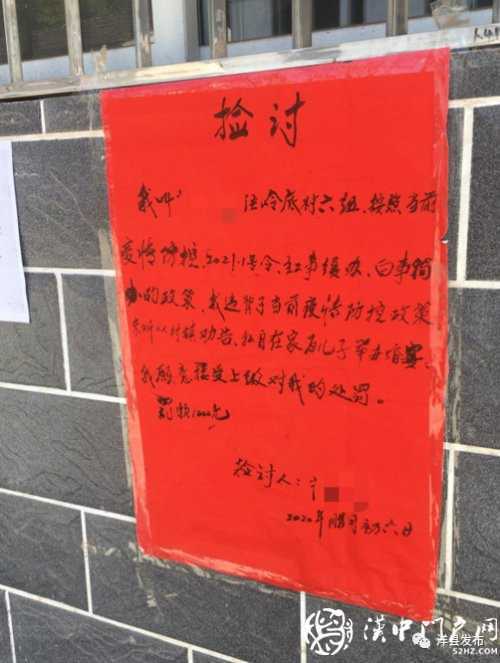 检讨
我叫 住岭底村六组,按照当前
疫情防控,2021.1号令,红事缓办,白事简
办的政策,我违背了当前疫情防控政策
未听从村镇劝告,私自在家为儿子举办婚宴,
我愿意接受上级对我的处罚。
罚款1000元
检讨人:宁
2020年腊月初六日
汉中门户网
洋县发布
WWW.52HZ.COM